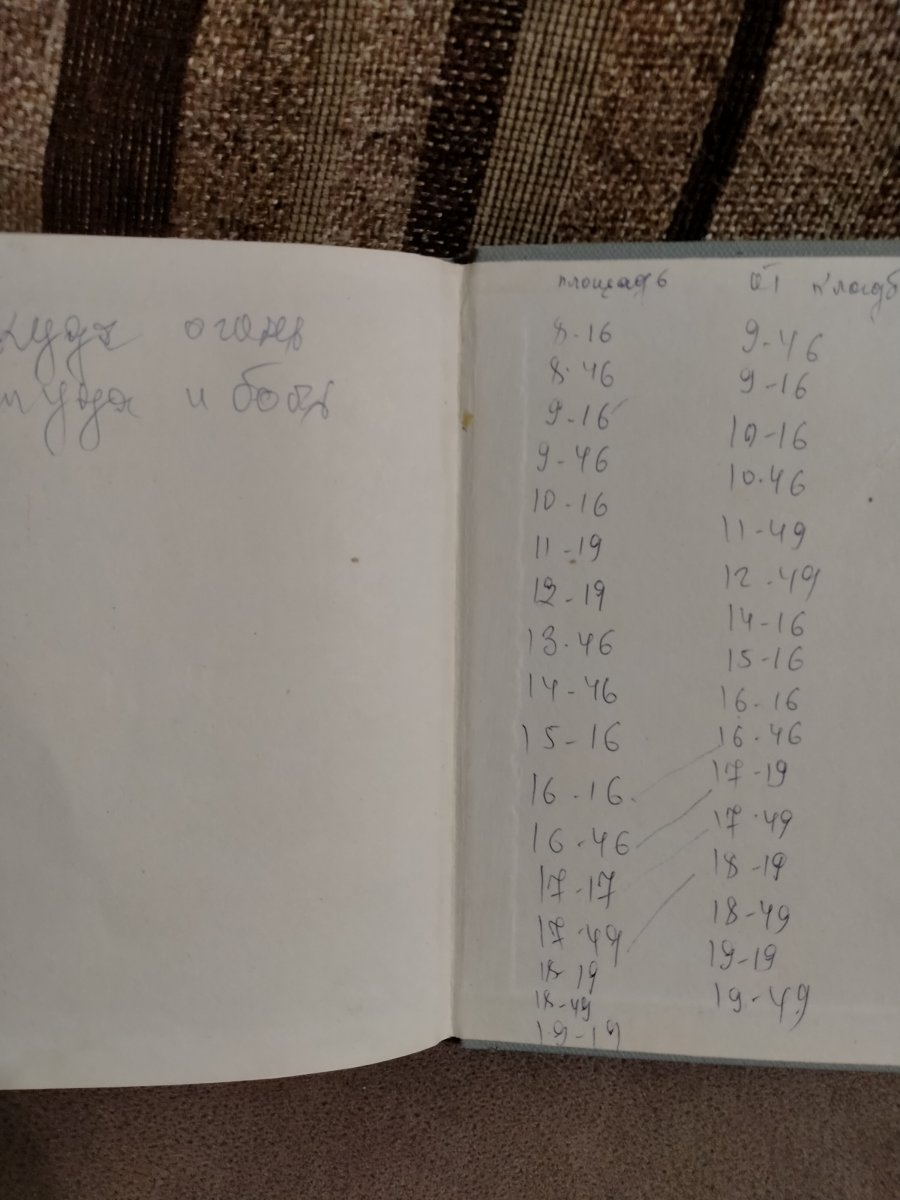 куда
туда и боль
площадь
8-16
8-46
9-16
9-46
10-16
11-19
12-19
13-46
14-46
15-16
16-16
16-46
17-17
17-49
18-19
18-49
19-19
от кладб
9-46
9-16
10-16
10-46
11-49
12-49
14-16
15-16
16-16
16-46
17-19
17-49
18-19
18-49
19-19
19-49